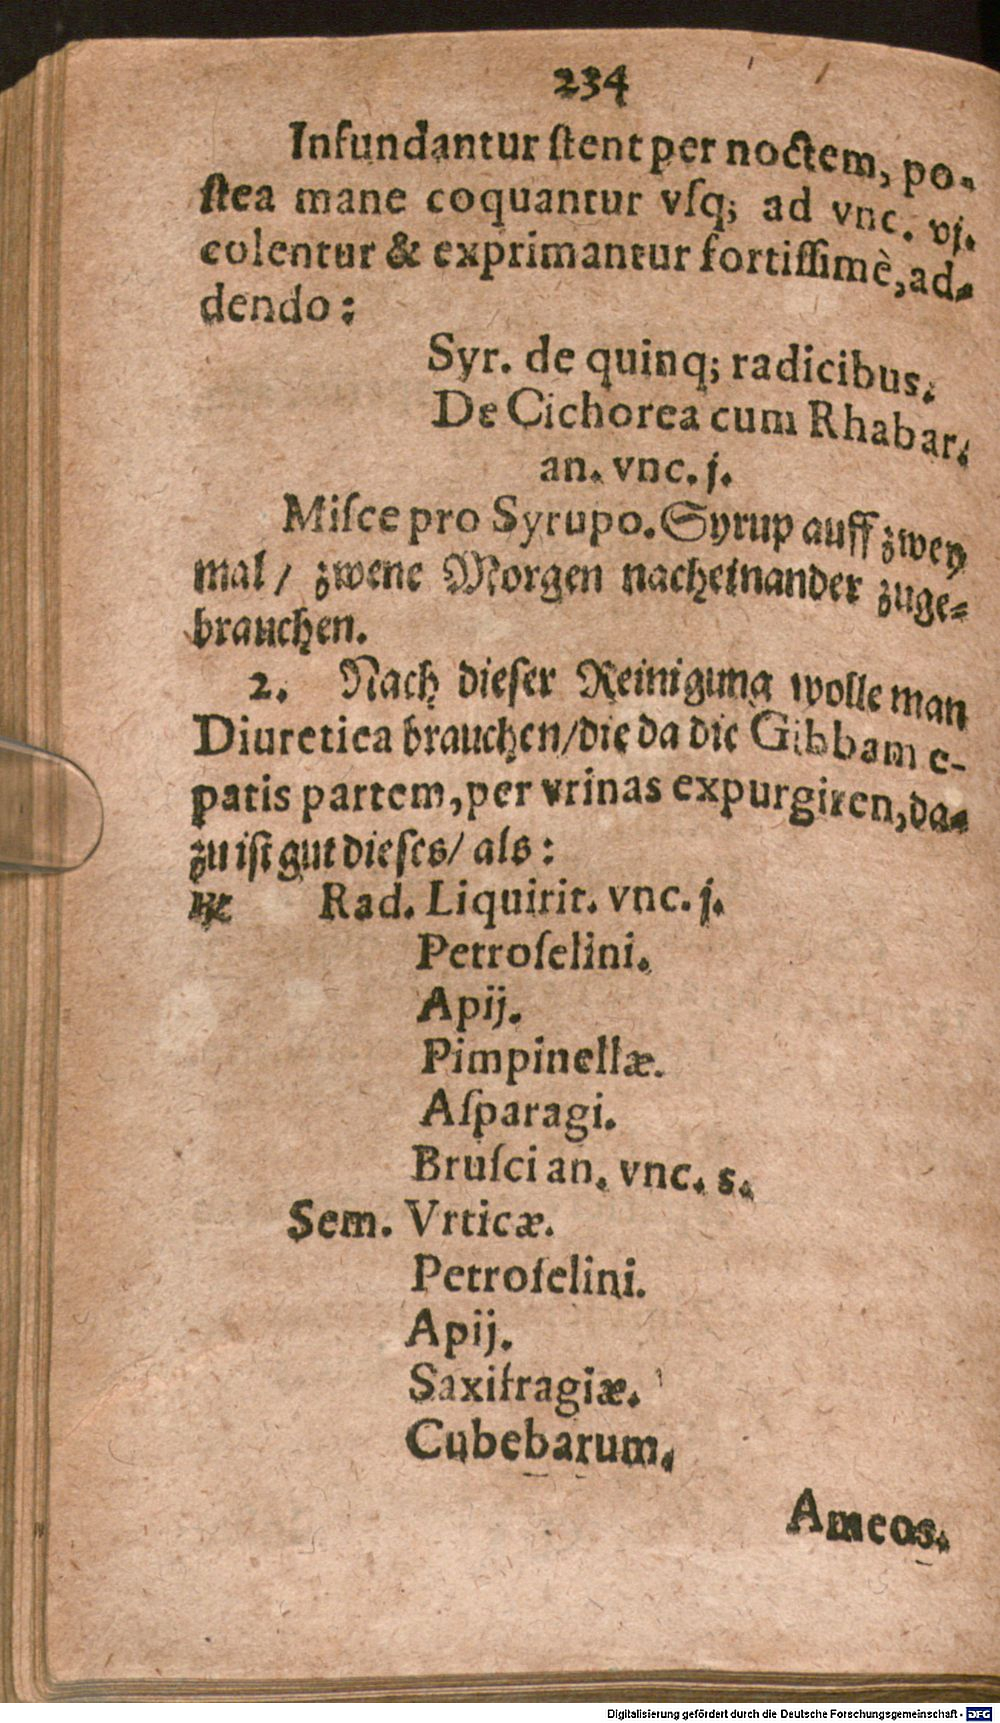 234
Infundantur ſtent per noctem, po-
ſtea mane coquantur vſq; ad vnc. vj.
colentur & exprimantur fortiſſimè, ad-
dendo:
Syr. de quinq; radicibus.
De Cichorea cum Rhabar.
an. vnc. j.
Miſce pro Syrupo. Syrup auff zwey
mal / zwene Morgen nacheinander zuge-
brauchen.
2. Nach dieſer Reinigung wolle man
Diuretica brauchen / die da die Gibbam e-
patis partem, per vrinas expurgiren, da-
zu iſt gut dieſes / als:
℞ Rad. Liquirit. vnc. j.
Petroſelini.
Apij.
Pimpinellæ.
Aſparagi.
Bruſci an. vnc. s.
Sem. Vrticæ.
Petroſelini.
Apij.
Saxifragiæ.
Cubebarum.
Ameos.
Digitalisierung gefördert durch die Deutsche Forschungsgemeinschaft - DFG